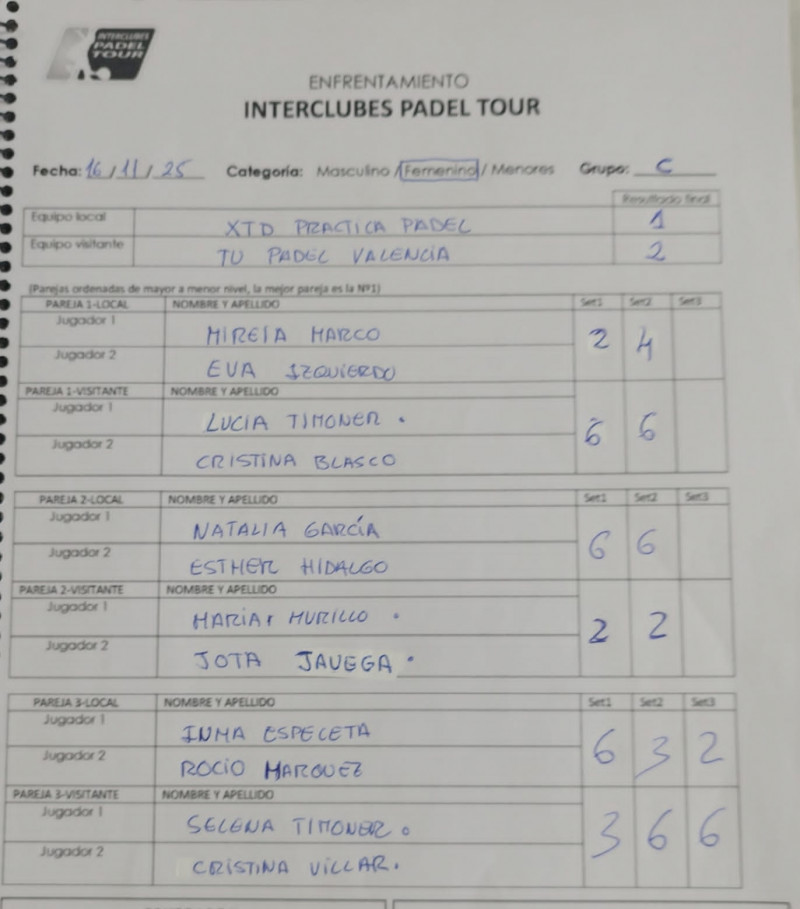 INTERCLUBES
PADEL
TOUR
ENFRENTAMIENTO
INTERCLUBES PADEL TOUR
Fecha: 16/11/25 Categoría: Masculino / Femenino / Menores Grupo: C
Resultado final
Equipo local XTD PRACTICA PADEL 1
Equipo visitante TU PADEL VALENCIA 2
(Parejas ordenadas de mayor a menor nivel, la mejor pareja es la Nº1)
PAREJA 1-LOCAL NOMBRE Y APELLIDO Set1 Set2 Set3
Jugador 1 MIREIA MARCO 2 4
Jugador 2 EVA IZQUIERDO
PAREJA 1-VISITANTE NOMBRE Y APELLIDO
Jugador 1 LUCIA TIMONER . 6 6
Jugador 2 CRISTINA BLASCO
PAREJA 2-LOCAL NOMBRE Y APELLIDO Set1 Set2 Set3
Jugador 1 NATALIA GARCÍA 6 6
Jugador 2 ESTHER HIDALGO
PAREJA 2-VISITANTE NOMBRE Y APELLIDO
Jugador 1 MARIA MURILLO . 2 2
Jugador 2 JOTA JAVEGA .
PAREJA 3-LOCAL NOMBRE Y APELLIDO Set1 Set2 Set3
Jugador 1 INMA ESPECETA 6 3 2
Jugador 2 ROCIO MARQUEZ
PAREJA 3-VISITANTE NOMBRE Y APELLIDO
Jugador 1 SELENA TIMONER . 3 6 6
Jugador 2 CRISTINA VILLAR.